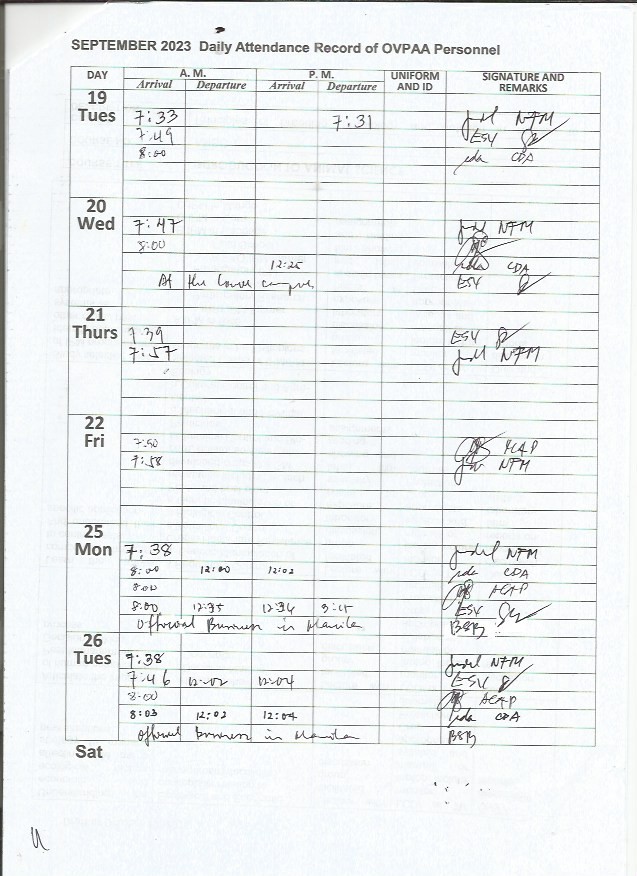 SEPTEMBER 2023 Daily Attendance Record of OVPAA Personnel
DAY A. M. P. M. UNIFORM AND ID SIGNATURE AND REMARKS
Arrival Departure Arrival Departure
19 Tues
7:33 7:31 NFM
7:49 ESV
8:00 CDA
20 Wed
7:47 NFM
8:00
12:25 CDA
At the lower campus ESV
21 Thurs
7:39 ESV
7:57 NFM
22 Fri
7:50
7:58 NFM
25 Mon
7:38 NFM
8:00 12:00 12:02 CDA
8:00
8:00 12:35 12:36 ESV
Official Business in Manila BSB
26 Tues
7:38 NFM
7:46 12:02 12:04 ESV
8:00
8:03 12:02 12:04 CDA
Official Business in Manila BSB
Sat